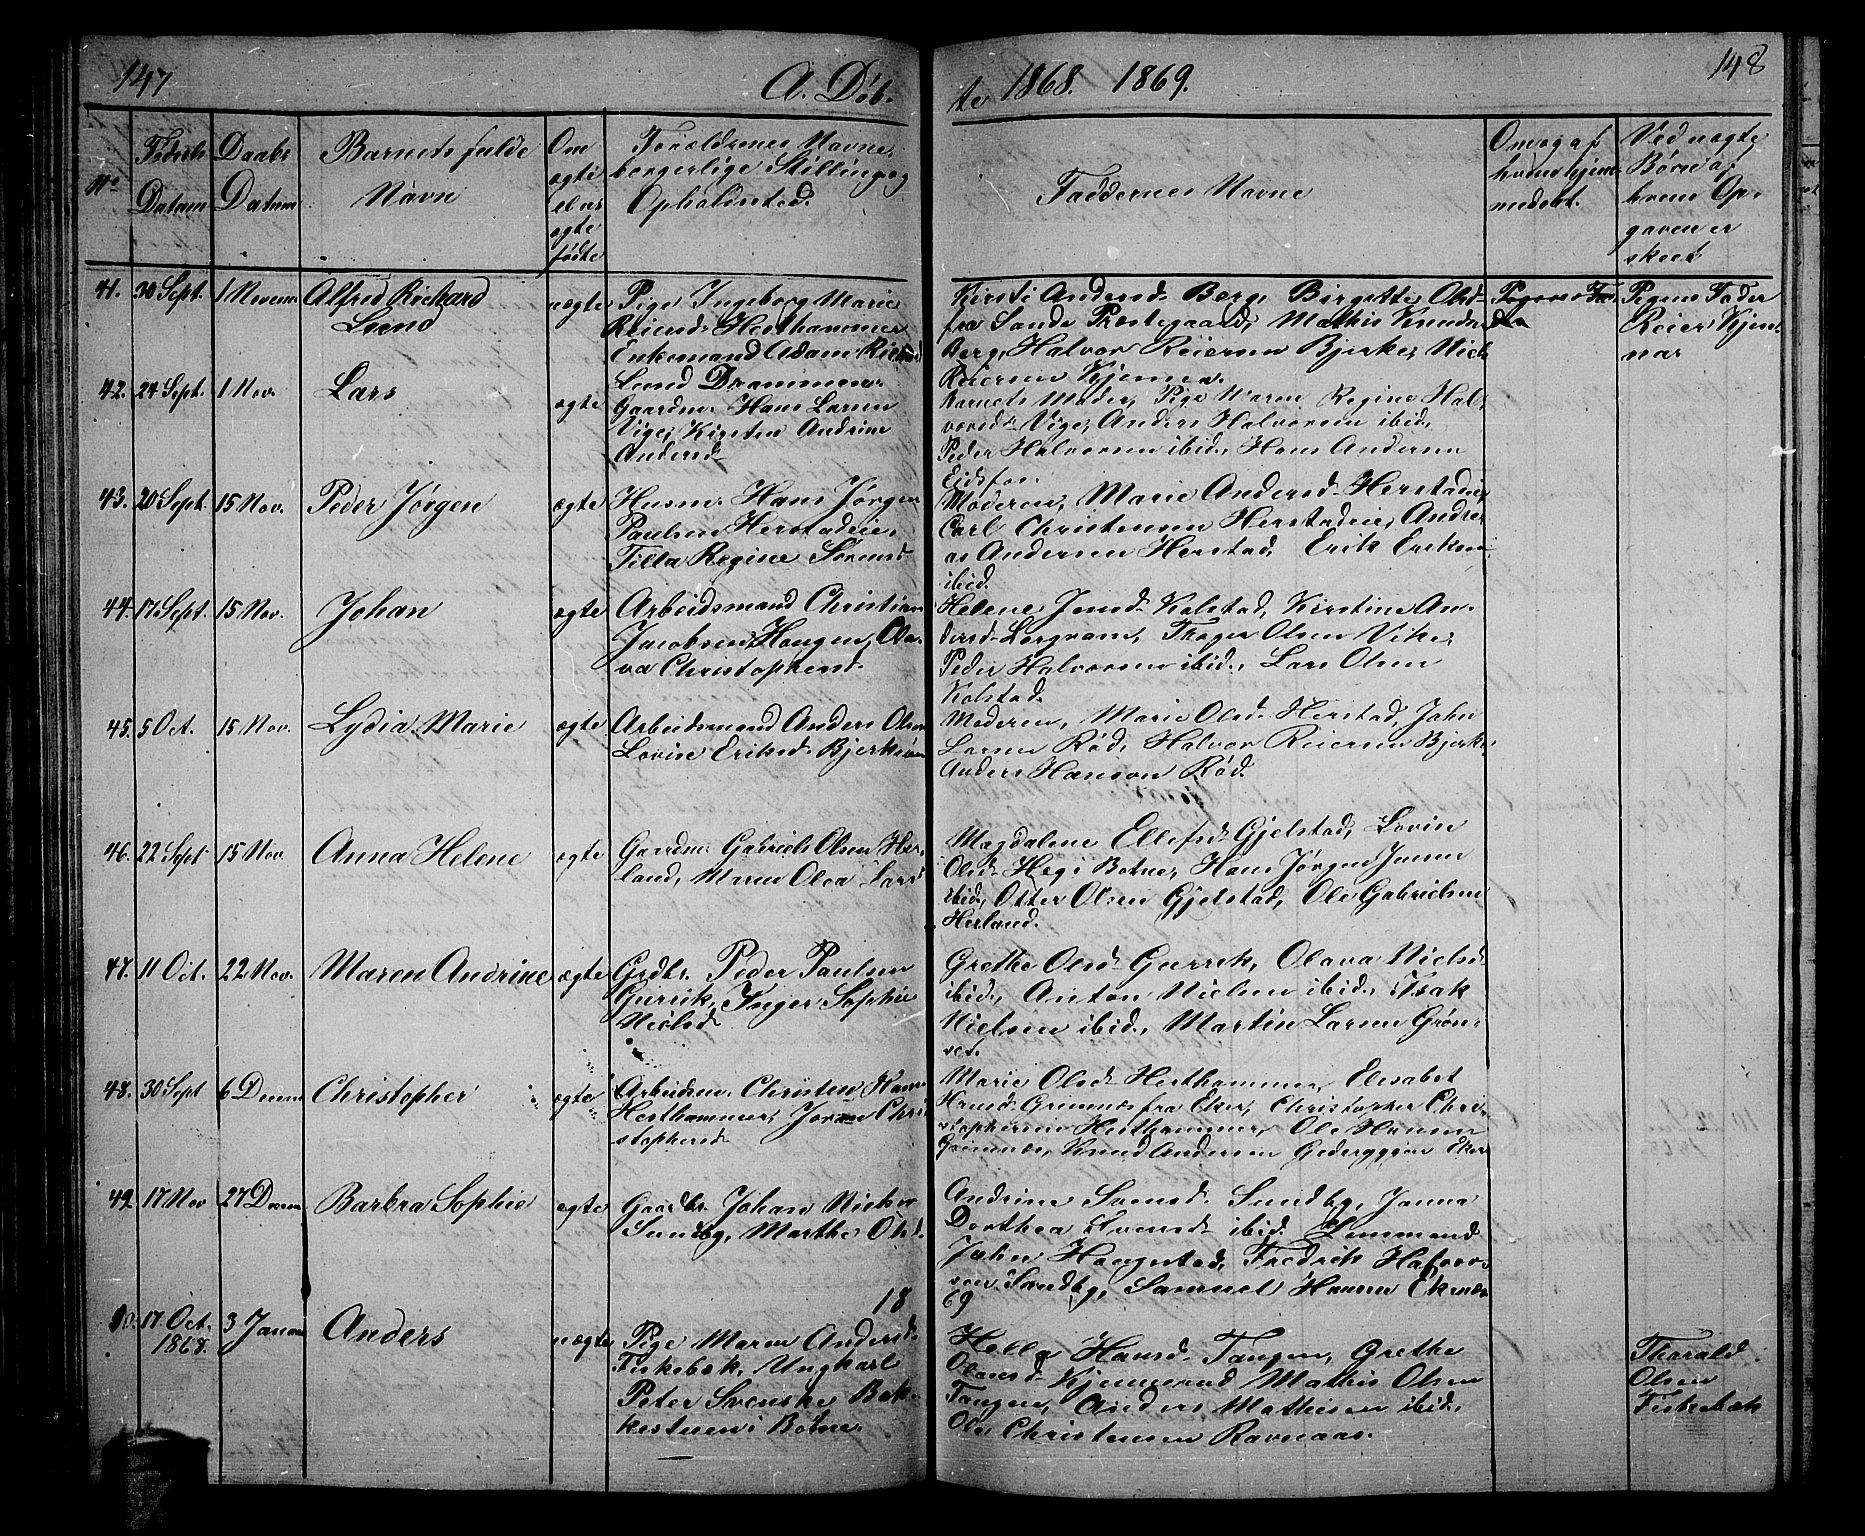 147 A. Døb-
te 1868. 1869. 148
No
Fødsels
Datum
Daabs
Datum
Barnets fulde
Navn
Om
ægte
eller
ægte
fødte
Forældrenes Navne,
borgerlige Stilling og
Opholdssted.
Faddernes Navne
Om og af
hvem hjem-
medøbt.
Ved uægte
Børn af
hvem Op-
gaven er
skeet
41. 30 Sept. 1 Novem Alfred Richard
Lund
uægte
Pige Ingeborg Marie
Reiersd. Hesthammer
Enkemand Adam
Lund Drammen.
Kirsti Andersd. Berg, Birgitte Olsd.
fra Sande Præstegaard, Mathis Knuds
Berg, Halvor Reiersen Bjerke, Niels
Reiersen Kjemen.
Pigens Fader
Reier Kjem-
nar
42. 24 Sept. 1 Nov. Lars ægte
Gaardm. Hans Larsen
Vige, Kirsten Andrine
Andersd.
Barnets Moder, Pige Maren Regine Hal-
vorsd. Vige, Anders Halvorsen ibid,
Peder Halvorsen ibid, Hans Andersen
Eidsfos.
43. 20 Sept. 15 Nov. Peder Jørgen ægte
Husm. Hans Jørgen
Paulsen Herstadeie,
Tilla Regine Sørensd.
Moderen, Marie Andersd. Herstadeie,
Carl Christensen Herstadeie, Andre-
as Andersen Herstad, Erik Eriksen
ibid.
44. 17 Sept. 15 Nov. Johan ægte
Arbeidsmand Christian
Jacobsen Haugen, Ola-
va Christophersd.
Helene Jensd. Kolstad, Kirstine An-
dersd. Lersvam, Thager Olsen Vike,
Peder Halvorsen ibid., Lars Olsen
Kolstad.
45. 5 Oct. 15 Nov. Lydia Marie ægte
Arbeidsmand Anders Olsen
Lovise Eriksd.
Moderen, Marie Olsd. Herstad, John
Larsen Rød, Halvor Reiersen Bjerke,
Anders Hanson Rød.
46. 22 Sept 15 Nov. Anna Helene ægte
Gaardm. Gabriel Olsen Her-
land, Maren Olea Larsd
Magdalene Ellefsd. Gjelstad, Lovise
Olsd. Heg i Botne, Hans Jørgen Jansen
ibid, Otter Olsen Gjelstad, Ole Gabrielsen
Herland.
47. 11 Oct. 22 Nov. Maren Andrine ægte
Grdbr. Peder Paulsen
Gurrik, Inger Sophie
Nielsd
Grethe Olsd. Gurrik, Olava Nielsd
ibid., Anton Nielsen ibid., Isak
Nielsen ibid., Martin Larsen Grøn-
set.
48. 30 Sept 6 Decem Christopher ægte
Arbeidsm. Christen Hans
Hesthammer, Joran Chri
stophersd.
Marie Olsd. Hesthammer, Elisabet
Hansd. Grimnæs fra Eker, Christopher Chri-
stophersen Hesthammer, Ole Hansen
Grimnæs, Knud Andersen Eker
49. 17 Nov 27 Decem Barbra Sophie ægte
Gaardbr. Johan Niels
Sundby, Marthe Olsd.
Andrine Svensd. Sundby, Janna
Dorthea Svensd. ibid. Lensmand
John Haugestad, Fredrik Halvor-
sen Sundby, Samuel Hansen Eknæs
18
69
50. 17 Oct.
1868. 3 Januar Anders uægte
Pige Maren Andersd.
Fiskebæk, Ungkarl
Peter Svenske Bak-
kestuen i Botne.
Hella Hansd. Tangen, Grethe
Olausd. Kjennerud Mathis Olsen
Tangen, Anders Mathisen ibid.
Ole Christensen Ravnaas.
Tharald
Olsen
Fiskebæk